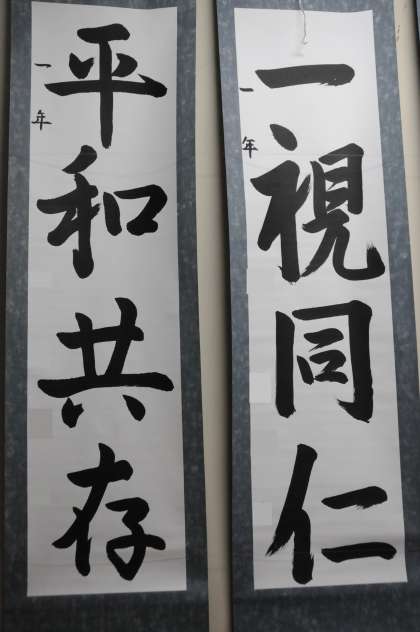 一視同仁
一年
平和共存
一年